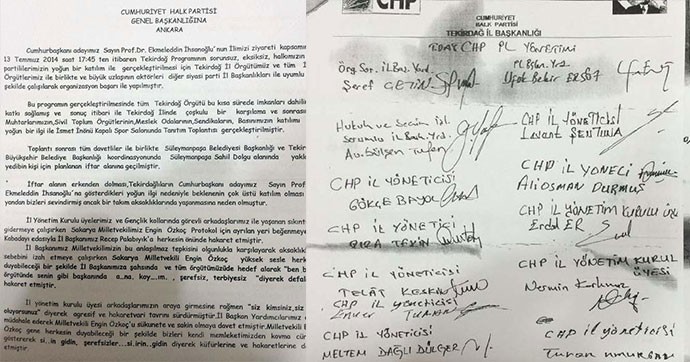 CUMHURİYET HALK PARTİSİ
GENEL BAŞKANLIĞINA
ANKARA
Cumhurbaşkanı adayımız Sayın Prof.Dr. Ekmeleddin İhsanoğlu'nun İlimizi ziyareti kapsamın
13 Temmuz 2014 saat 17:45 ten itibaren Tekirdağ Programının sorunsuz, eksiksiz, halkımızın
partililerimizin yoğun bir katılım ile gerçekleştirilmesi için Tekirdağ İl Örgütümüz ve tüm İ
Örgütlerimiz ile birlikte ve büyük uzlaşının aktörleri diğer siyasi parti İl Başkanlıkları ile uyumlu
şekilde çalışılarak organizasyon başarı ile yapılmıştır.
Bu programın gerçekleştirilmesinde tüm Tekirdağ Örgütü bu kısa sürede imkanları dahilin
katkı sağlamış ve sonuç itibari ile Tekirdağ İlinde çoşkulu bir karşılama ve sonrası
Muhtarlarımızın,Sivil Toplum Örgütlerinin,Meslek Odalarının,Sendikaların, Basınımızın katılımı
yoğun bir ilgi ile İsmet İnönü Kapalı Spor Salonunda Tanıtım Toplantısı gerçekleştirilmiştir.
Toplantı sonrası tüm davetliler ile birlikte Süleymanpaşa Belediyesi Başkanlığı ve Tekir
Büyükşehir Belediye Başkanlığı koordinasyonunda Süleymanpaşa Sahil Dolgu alanında yakl
yedibin kişi için planlanan iftar alanına geçilmiştir.
İftar alanın erkenden dolması,Tekirdağlıların Cumhurbaşkanı adayımız Sayın Prof.
Ekmeleddin İhsanoğlu'na gösterdikleri yoğun ilgi nedeniyle beklenenin çok üstü katılım olması
yandan bizleri sevindirmiş ancak bir takım aksaklıklarında yaşanmasına neden olmuştur.
İl Yönetim Kurulu üyelerimiz ve Gençlik kollarında görevli arkadaşlarımız ile yaşanan sıkıntı
gidermeye çalışırken Sakarya Milletvekilimiz Engin Özkoç Protokol için ayrılan yeri beğenmeye
Kabadayı edasıyla İl Başkanımız Recep Palabıyık'a herkesin önünde hakaret etmiştir.
İl Başkanımız Milletvekilimizin bu anlaşılmaz tepkisini olgunlukla karşılayarak aksaklıkla
sebebini izah etmeye çalışırken Sakarya Milletvekili Engin Özkoç yüksek sesle herk
duyabileceği bir şekilde İl Başkanımıza şahsında ve tüm örgütümüzüde hedef alarak "ben b
örgütünde senin gibi başkanında a..na..koy....ım. , şerefsiz, terbiyesiz "diyerek defal
hakaret etmiştir.
İl yönetim kurulu üyesi arkadaşlarımızın araya girmesine rağmen "siz kimsiniz,siz
oluyorsunuz" diyerek agresif ve hakaretvari tavrını sürdürmüştür.İl Başkan Yardımcılarımız d
müdahale ederek Milletvekili Engin Özkoç'u sükunete ve sakin olmaya davet etmiştir.Milletveki
Özkoç gene herkesin duyabileceği bir şekilde bizleri kendi memleketimizden kovma cür
göstererek si..in gidin, şerefsizler...si..irin..gidin diyerek küfürlerine ve hakaretlerine d
etmiştir.
CHP
CUMHURİYET
HALK PARTİSİ
TEKİRDAĞ İL BAŞKANLIĞI
CHP İL YÖNETİMİ
Örg. Sor. İl Baş. Yard.
Şeref ÇETİN
Ufuk Bekir ERSÖZ
Hukuk ve Seçim İşl.
Sorumlu İl Bşk. Yrd.
Av. Gülşen
CHP İL YÖNETİCİSİ
Levent
CHP İL YÖNETİCİSİ
GÖKÇE BAYOL
CHP İL
Aliosman DURMUŞ
CHP İL YÖNETİCİ
CHP İL YÖNETİM KURULU
Erdal ER
CHP İL YÖNETİCİSİ
CHP İL YÖNETİM KURUL
ÜYESİ
Nermin
CHP İL YÖNETİCİSİ
MELTEM DAĞLI DÜLGER
CHP İL YÖNETİCİSİ
Turan